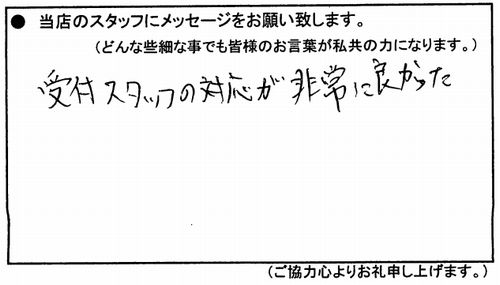 ● 当店のスタッフにメッセージをお願い致します。
（どんな些細な事でも皆様のお言葉が私共の力になります。）
受付スタッフの対応が非常に良かった
（ご協力心よりお礼申し上げます。）